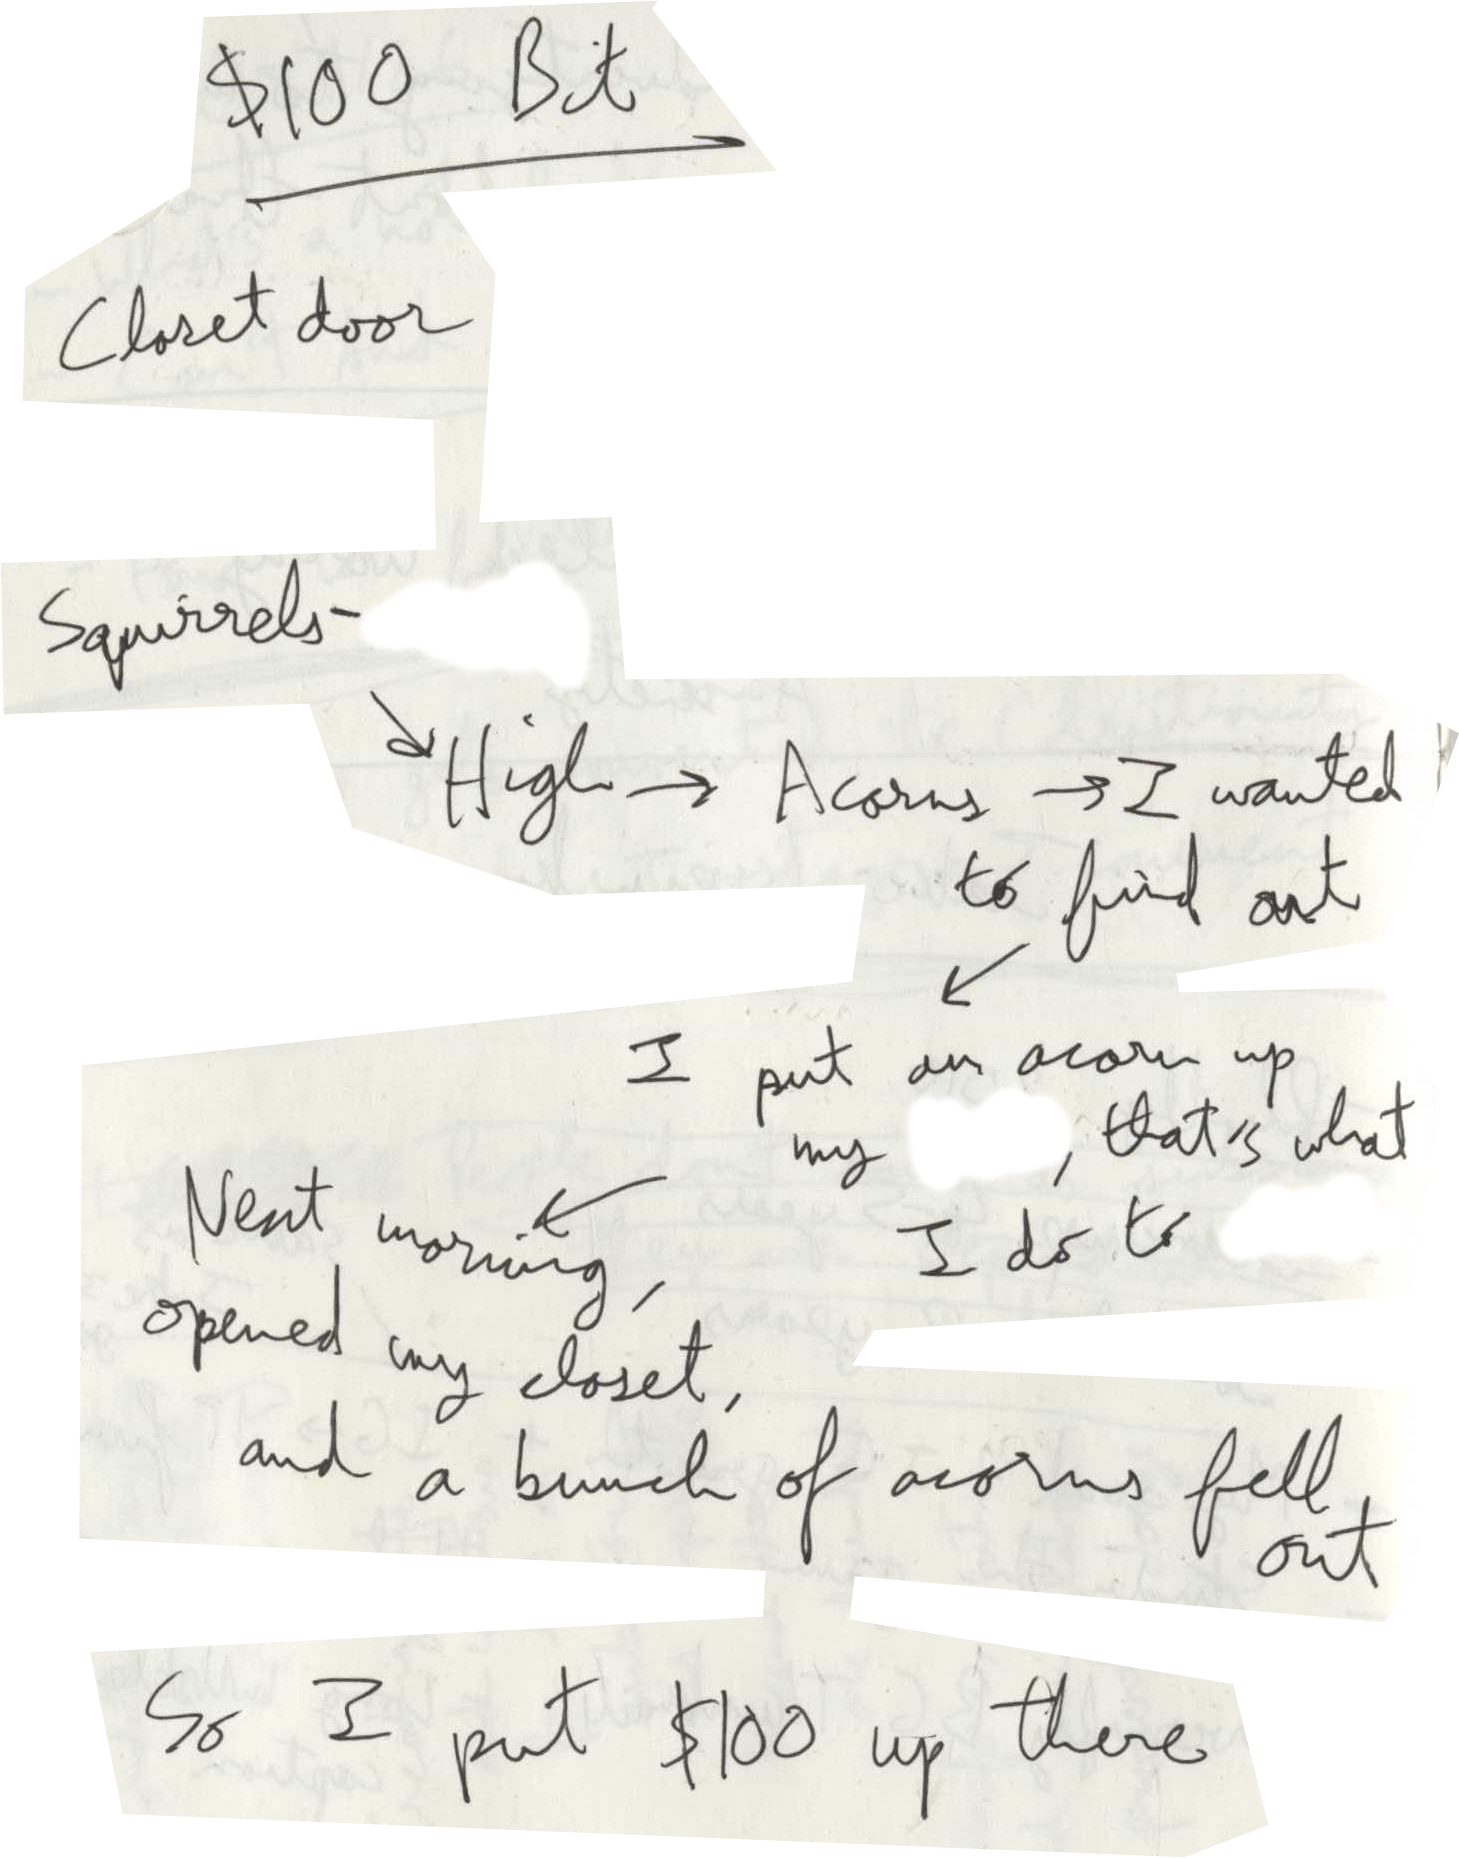 $100 Bit
Closet door
Squirrels-
High → Acorns → I wanted
to find out
I put an acorn up
my , that's what
I do to
Next morning,
opened my closet,
and a bunch of acorns fell
out
So I put $100 up there